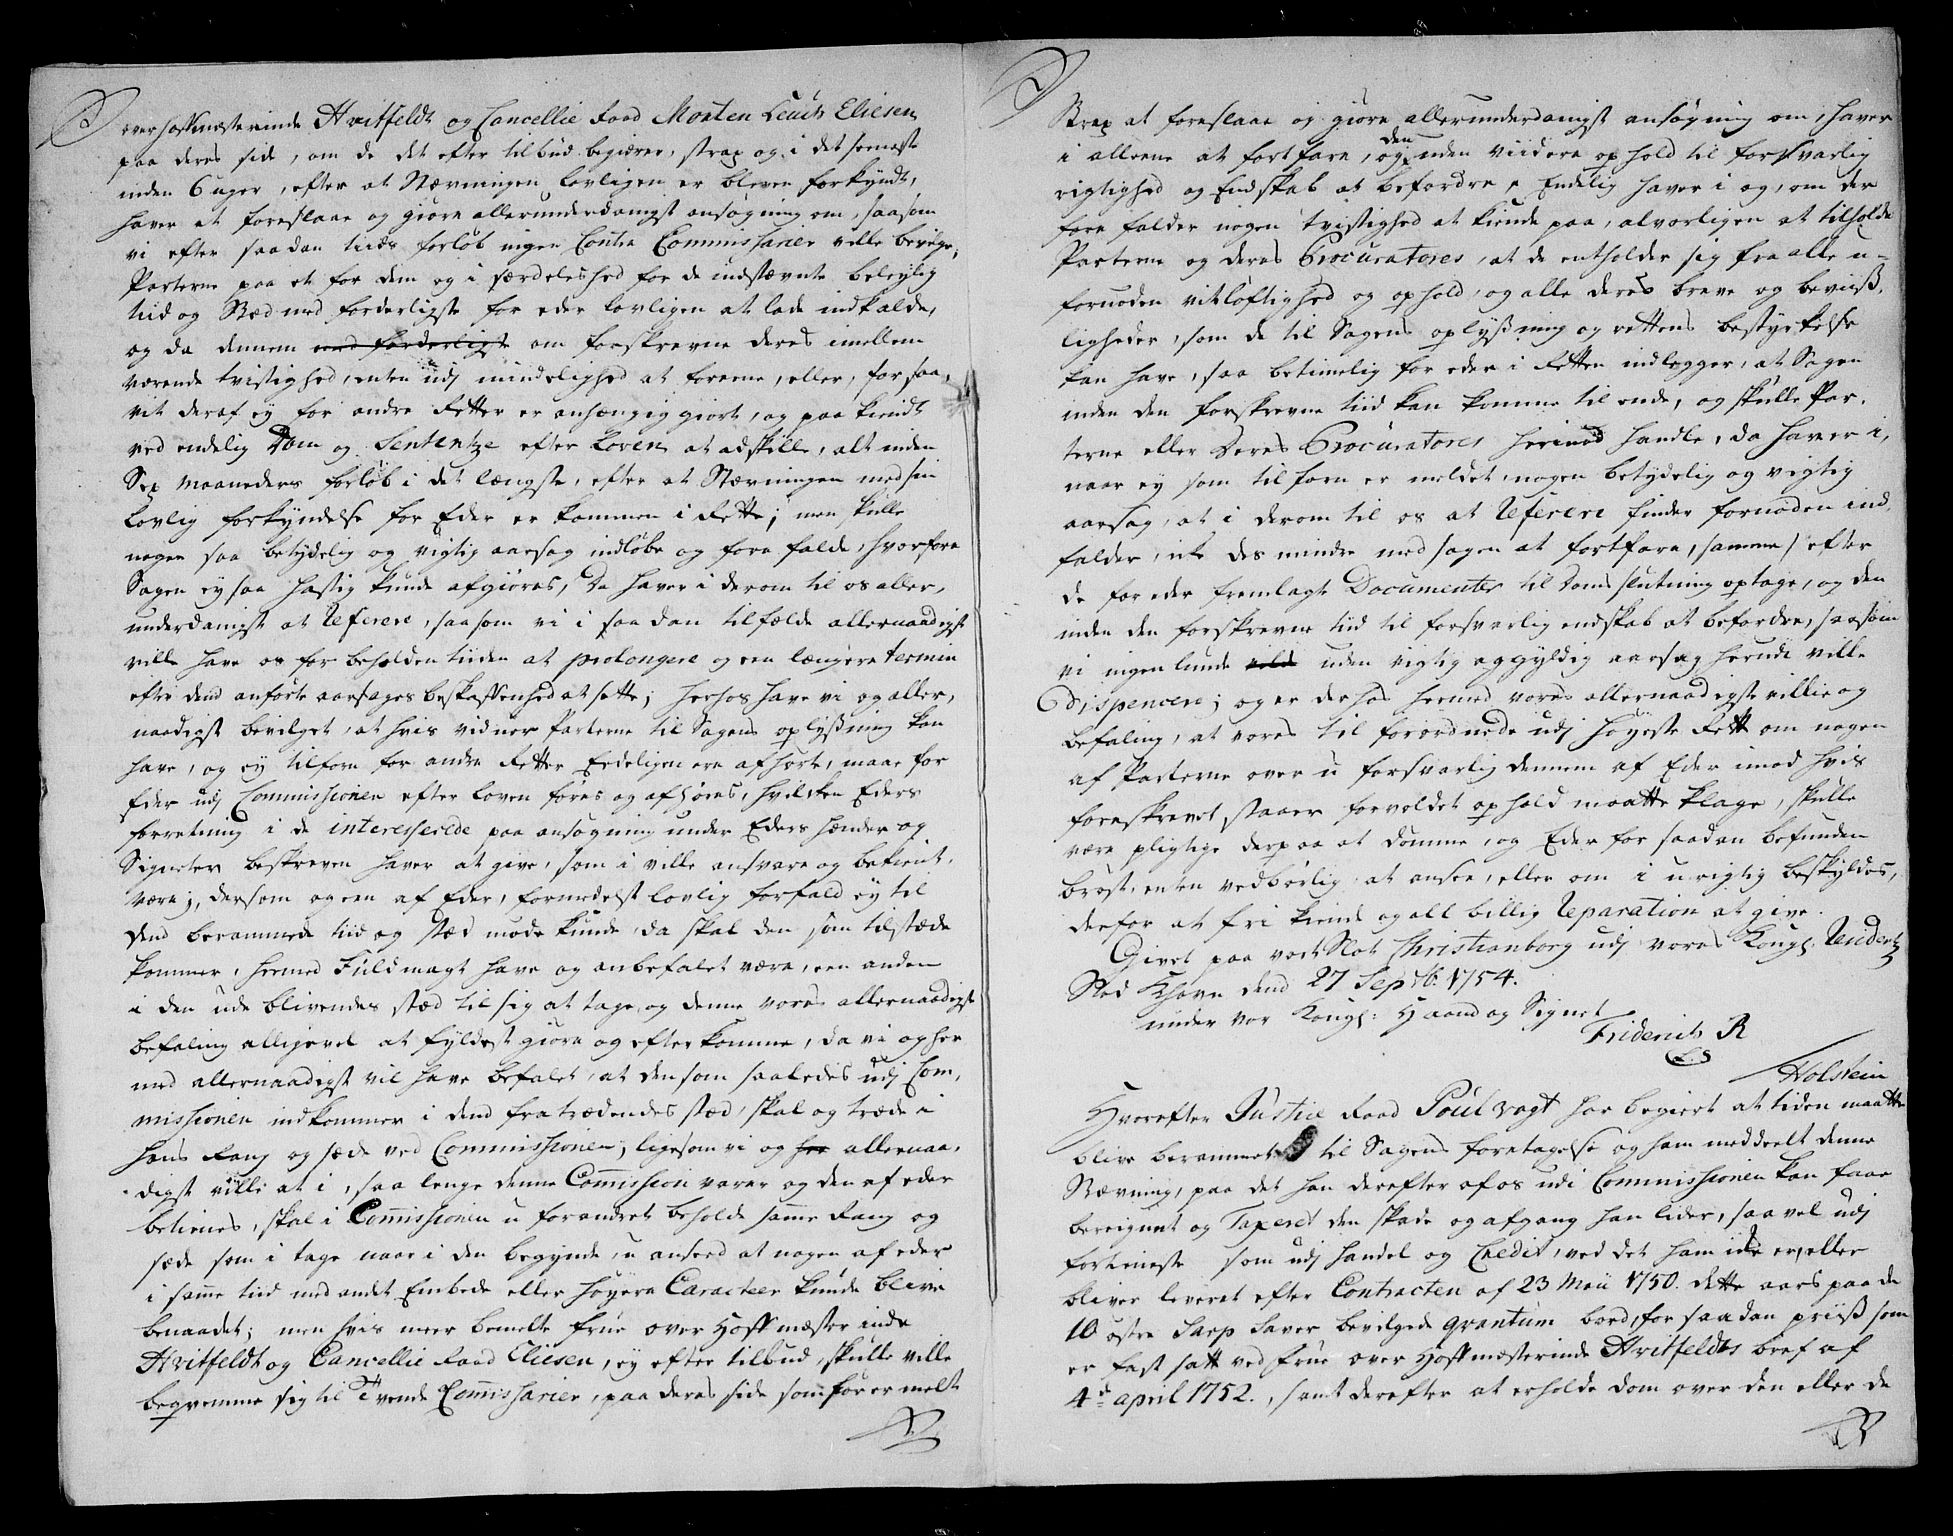 overhoffmesterinde Hvitfeldt og Cancellie Raad Morten Leuch Eliesen
paa deres side, om de det efter tilbud begiærer, strax og i det seeneste
inden 6 uger, efter at Stævningen lovligen er bleven forkyndt,
haver at foreslaae og giøre allerunderdanigst ansøgning om, saasom
vi efter saadan tiids forløb ingen Contra Commissarier ville bevilge,
Parterne paa et for dem og i særdeleshed for de indstævnte beleylig
tiid og Stæd med forderligste for eder lovligen at lade indkalde,
og da dennem med forderligste om forskrevne deres imellem
værende tvistighed, enten udj mindelighed at foreene, eller, for saa,
vit deraf ey for andre Retter er anhængiggiort, og paakiendt
ved endelig Dom og Sententze efter Loven at adskille, alt inden
Sex Maaneders forløb i det længste, efter at Stævningen med sin
Lovlig forkyndelse for Eder er kommen i Rette; men kulle
nogen saa betydelig og vigtig aarsag indløbe og fore falde, hvorfore
Sagen ey saa hastig kunde afgiøres, Da haver i derom til os aller,
underdanigst at Referere, saasom vi i saadan tilfælde allernaadigst
ville have os forbeholden tiiden at prolongere og een længere termin
efter dend anførte aarsages beskaffenhed at sette; herhos have vi og aller,
naadigst bevilget, at hvis vidner Parterne til Sagens oplyßning kan
have, og ey tilforn for andre Retter Eedeligen ere afhørte, maae for
Eder udj Commissionen efter loven føres og afhøres, hvilcken Eders
forretning i de interesserede paa ansøgning under Eders hænder og
Signeter beskreven haver at give, som i ville ansvare og bekient,
være; dersom og een af Eder, formedelst lovlig forfald ey til
dend berammede tiid og stæd møde kunde, da skal den som tilstæde
kommer, hermed Fuldmagt have og anbefalet være, een anden
i den ude blivendes stæd til sig at tage, og denne vores allernaadigste
befaling alligevel at fyldestgiøre og efterkomme, da vi og her
med allernaadigst vil have befalet, at den som saaledes udj Com,
missionen indkommer i dend fratrædendes stæd, skal og træde i
hans Rang og sæde ved Commissionen; ligesom vi og her allernaa,
digst ville at i, saa lenge denne Commission varer og den af eder
betienes, skal i Commissionen uforandret beholde samme Rang og
sæde som i tage naar i den begynde, u anseed at nogen af eder
i samme tiid med andet Embede eller høyere Caracteer kunde blive
benaadet; men hvis meerbemelte frue over Hoffmæsterinde
Hvitfeldt og Cancellie Raad Eliesen, ey efter tilbud, skulle ville
beqvemme sig til Tvende Commissarier, paa deres side som før er melt

Strax at foreslaae og giøre allerunderdanigst ansøgning om, haver
i alleene at fortfare, og den uden viidere ophold til forsvarlig
rigtighed og Endskab at befordre, Endelig haver i og, om der
fore falder nogen tvistighed at kiende paa, alvorligen at tilholde
Parterne og deres Procuratores, at de entholder sig fra alle u-
fornøden vitløftighed og ophold, og alle deres breve og beviiß,
ligheder, som de til Sagens oplyßning og rettens bestyrkelse
kan have, saa betimelig for eder i Retten indlegger, at Sagen
inden den forskrevne tiid kan komme til ende, og skulle Par,
terne eller Deres Procuratores herimod handle, da haver i,
naar ey som tilforn er meldet, nogen betydelig og vigtig
aarsag, at i derom til os at Referere finder fornøden ind,
falder, ike desmindre med sagen at fortfare, samme efter
de for eder fremlagte Documenter til Doms slutning optage, og den
inden den forskrevne tiid til forsvarlig endskab at befordre, saasom
vi ingenlunde vilde uden vigtig og gyldig aarsag herudi ville
Dispencere; og er derhos hermed vores allernaadigste villie og
befaling, at vores tilforordnede udj Høyeste Rett om nogen
af Parterne over u forsvarlig dennem af Eder imod hvis
foreskrevet staaer forvoldet ophold maatte klage, skulle
være pligtige derpaa at dømme, og Eder for saadan befunden
brøst, enten vedbørlig at ansee, eller om i urigtig beskyldes,
derfor at fri kiende og all billig Reparation at give.
Givet paa vort Slot Christianborg udj vores Kongl. Residentz
Stad Khavn dend 27 Septbr. 1754.
under vor Kongl: Haand og Signet
Friderich R
L.S
Holstein
Hvorefter Justice Raad Poul Vogt har begiert at tiden maatte
blive berammet til Sagens foretagelse og ham meddeelt denne
Stævning, paa det han derefter af os udi Commissionen kan faae
bereignet og Taxeret den skade og afgang han lider, saavel udj
fortieneste som udj handel og Credit, ved det ham ide er, eller
bliver leveret efter Contracten af 23 Maii 1750. dette aars paa de
10 østre Sarp Sauer bevilgede qvantum bord, for saadan priiß som
er fastsatt ved Frue over Hoffmæsterinde Hvitfeldts bref af
4de april 1752., samt derefter at erholde dom over den eller de